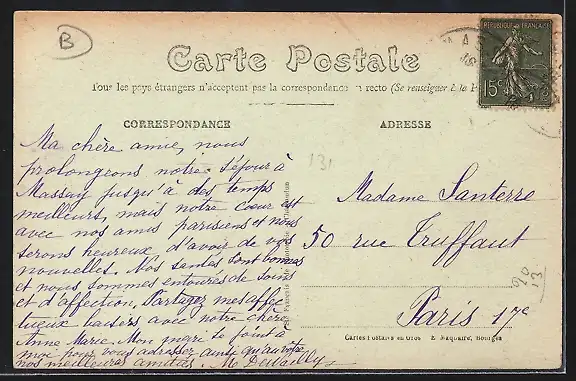 B
Carte Postale
Tous les pays étrangers n'acceptent pas la correspondance recto (Se renseigner à la
CORRESPONDANCE
ADRESSE
RÉPUBLIQUE FRANÇAISE
15c
131
Ma chère amie, nous
prolongeons notre séjour à
Massay jusqu'à des temps
meilleurs, mais notre cœur est
avec nos amis parisiens et nous
serons heureux d'avoir de vos
nouvelles. Nos santés sont bonnes
et nous sommes entourés de soins
et d'affection. Partagez mes affec
tueux baisers avec notre chère
Anne Marie. Mon mari se joint à
moi pour vous adresser ainsi qu'au vôtre
nos meilleures amitiés. M
Madame Santerre
50 rue Truffaut
Paris 17e
Cartes Postales en Gros Bourges